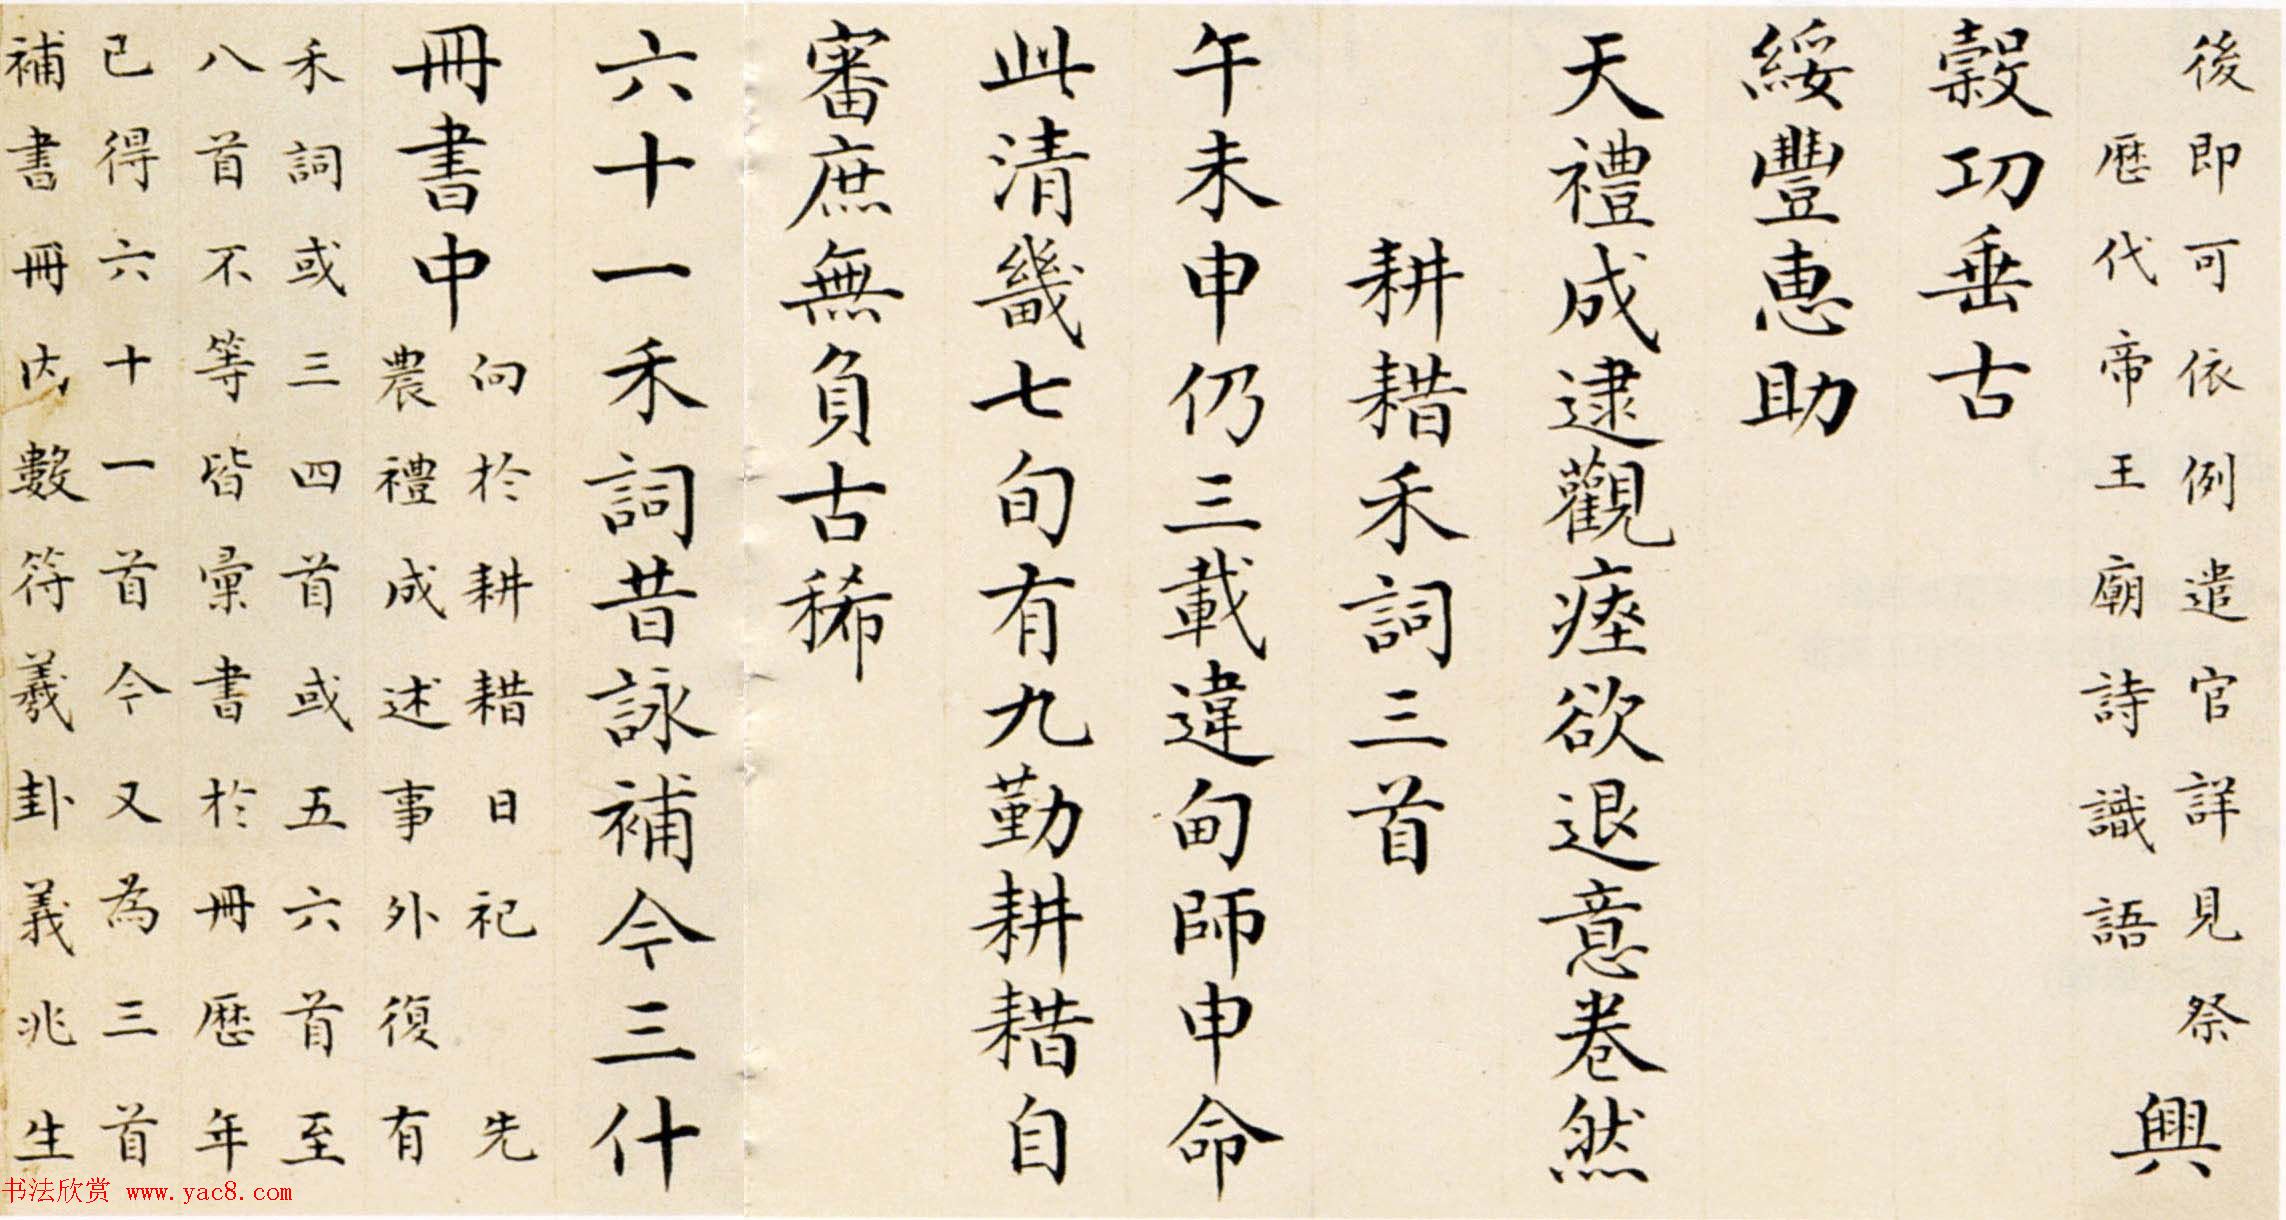 後即可依例遣官詳見祭
厯代帝王廟詩識語
興
穀功垂古
綏豐恵助
天禮成逮觀瘞欲退意卷然
耕耤禾詞三首
午未申仍三載違甸師申命
此清畿七旬有九勤耕耤自
審庶無負古稀
六十一禾詞昔詠補今三什
冊書中
向於耕耤日祀先
農禮成述事外復有
禾詞或三四首或五六首至
八首不等皆彙書於冊厯年
已得六十一首今又為三首
補書冊内數符羲卦義兆生
书法欣赏 www.yac8.com